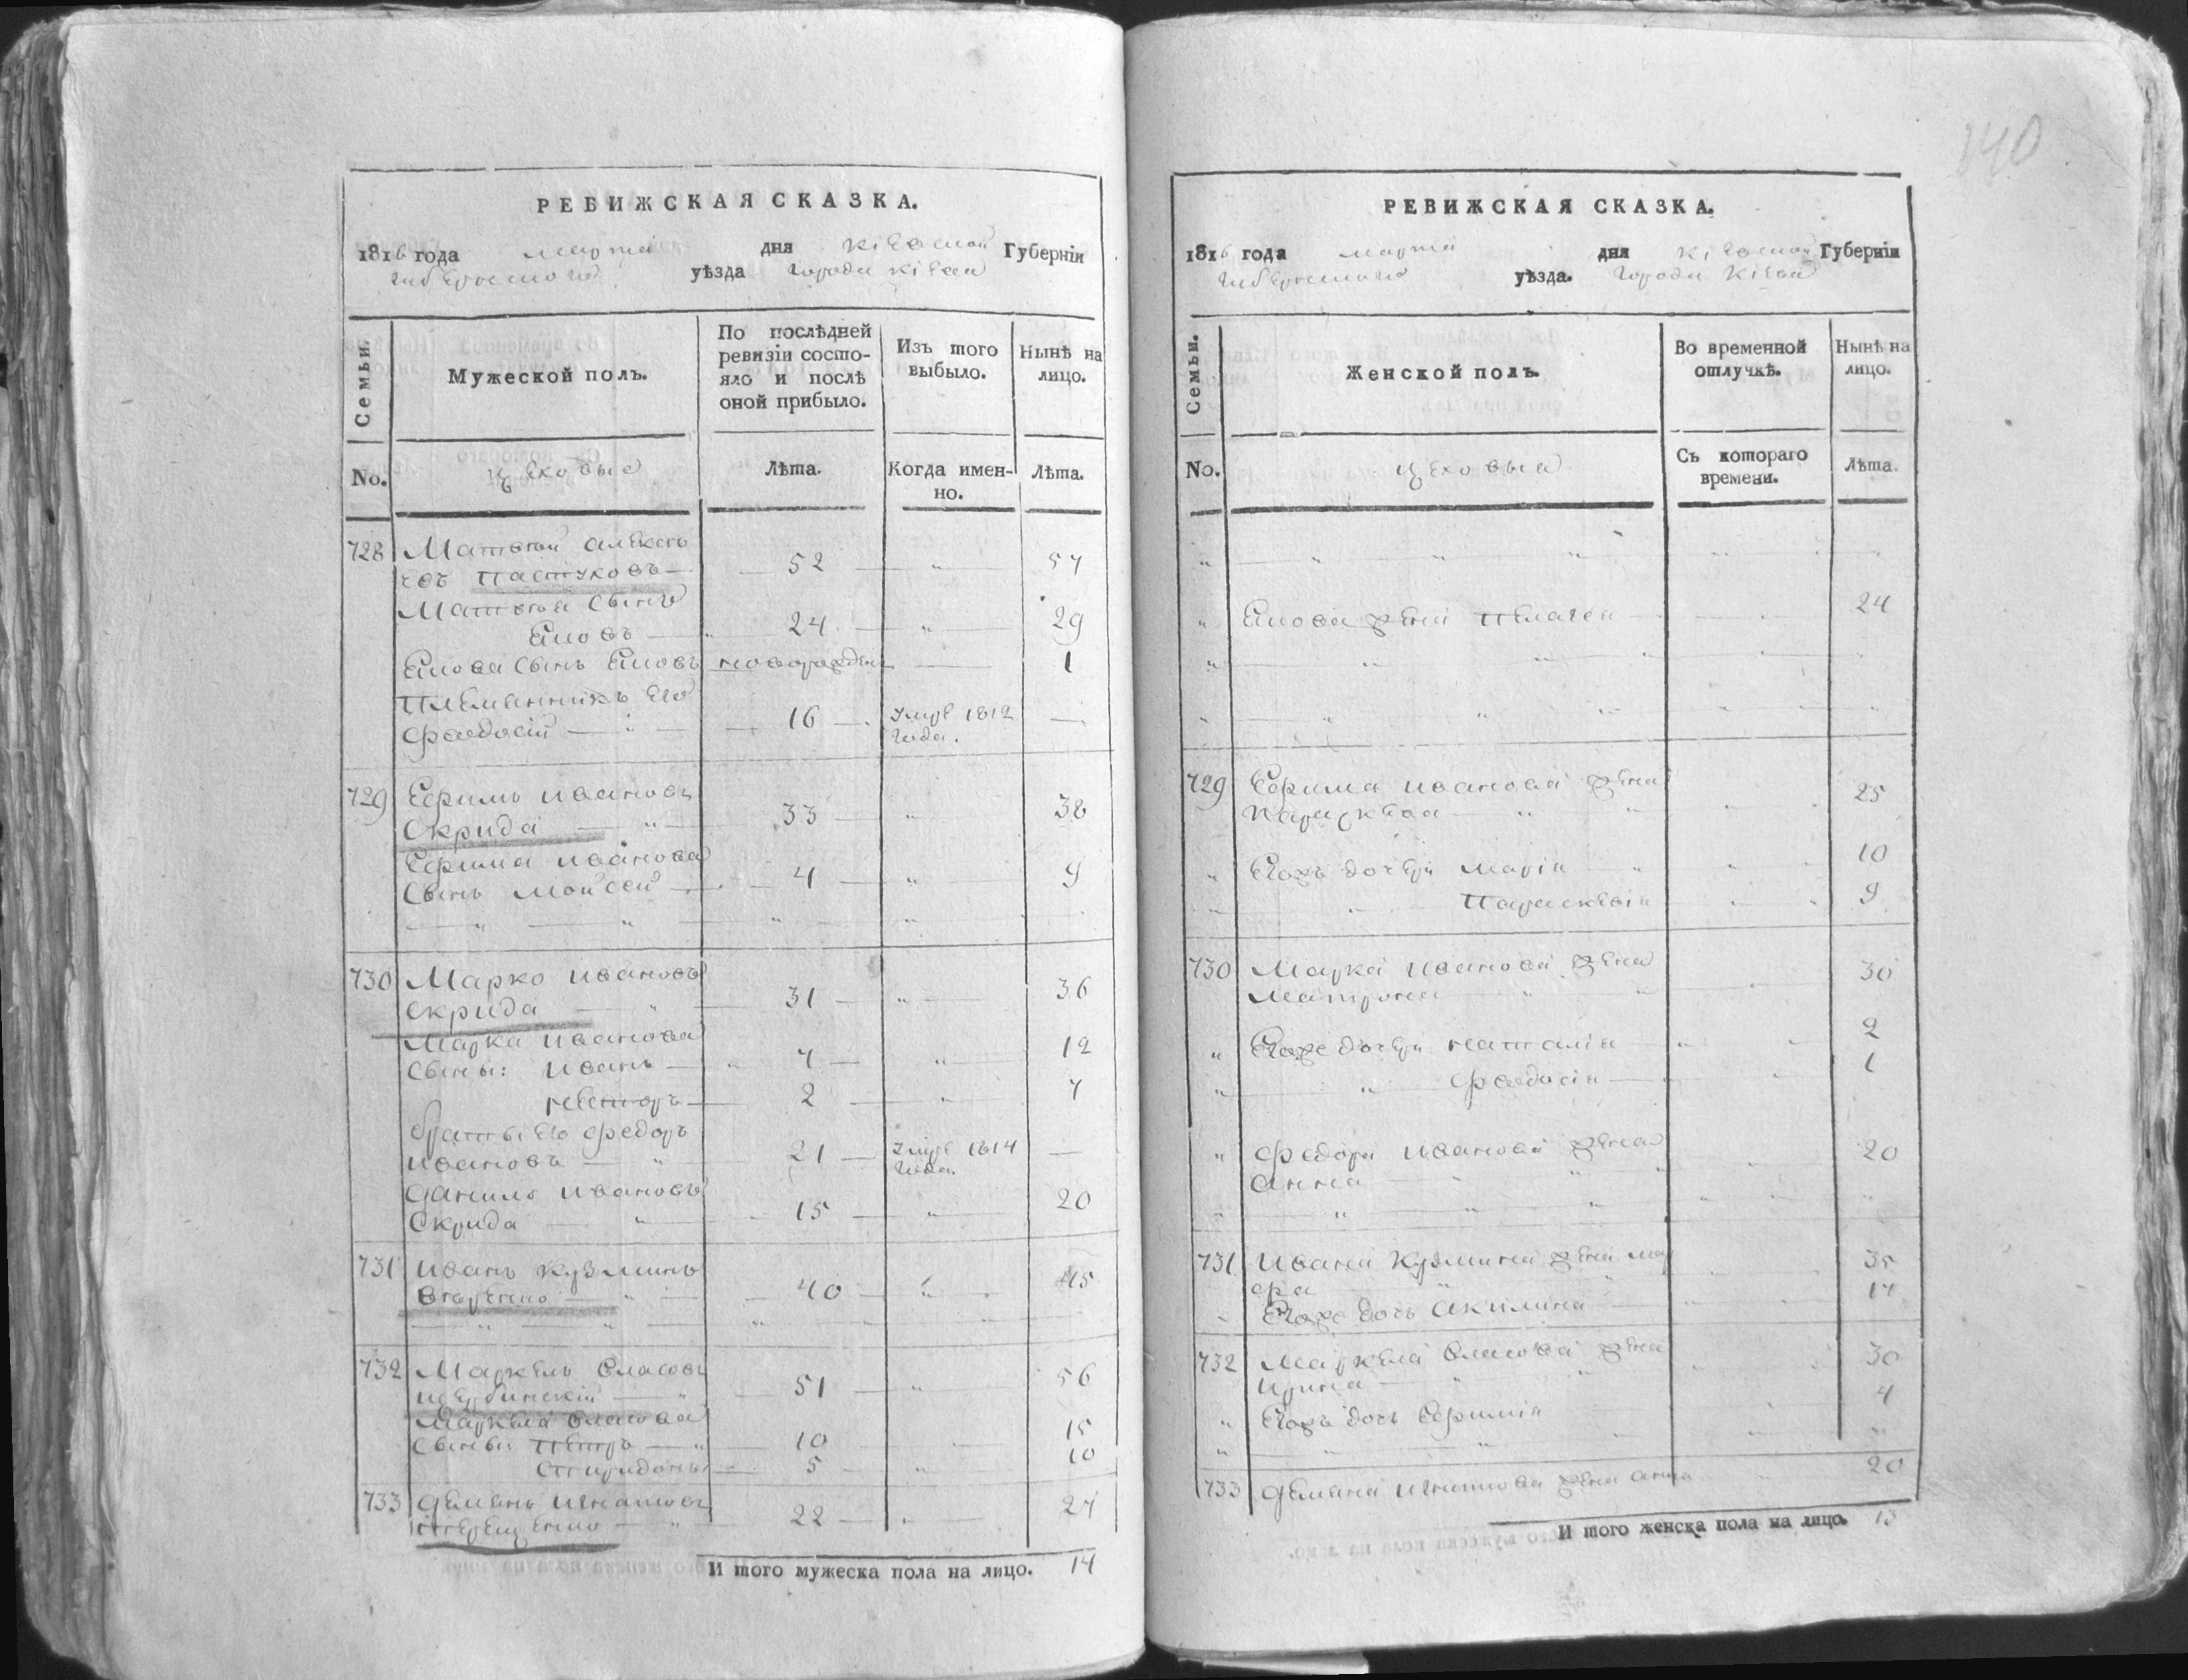 РЕВИЖСКАЯ СКАЗКА.
1816 года марта дня Кіевской Губерніи
уѣзда города Кіева
Семьи.
Мужеской полъ.
По послѣдней ревизіи состо-
яло и послѣ
оной прибыло.
Изъ того
выбыло.
Нынѣ на
лицо.
No.
цеховые
Лѣта.
Когда имен-
но.
Лѣта.
728 Матвей Алексѣе
въ Пастуховъ 52 57
Матвея сынъ
Яковъ 24 29
Якова сынъ Яковъ новорожден 1
Племянникъ его
Феодосій 16 умре 1812
года.
729 Ефимъ Ивановъ
Скрида 33 38
Ефима Иванова
сынъ Мойсей 4 9
730 Марко Ивановъ
Скрида 31 36
Марка Иванова
сыны: Иванъ 7 12
Несторъ 2 7
братья его Федоръ
Ивановъ 21 умре 1814
года.
Данило Ивановъ
Скрида 15 20
731 Иванъ Кузминъ
40 45
732 Маркелъ Власовъ
Щербинскій 51 56
Маркела Власова
сыны Петръ 10 15
Спиридонъ 5 10
733 Демянъ Игнатовъ
Терещенко 22 27
И того мужеска пола на лицо. 14
140
РЕВИЖСКАЯ СКАЗКА.
1816 года марта дня Кіевской Губерніи
уѣзда. города Кіева
Семьи.
Женской полъ.
Во временной
отлучкѣ.
Нынѣ на
лицо.
No.
цеховые
Съ котораго
времени.
Лѣта.
Якова жена Пелагея 24
729 Ефима Иванова жена
Параскева 25
Егожъ дочери Марія 10
Параскевія 9
730 Марка Иванова жена
Матрона 30
Егоже дочери Наталія 2
Феодосія 1
Федора Иванова жена
Анна 20
731 Ивана Кузмина жена Мар
фа 35
Егоже дочь Акилина 17
732 Маркела Власова жена
Ирина 30
Егожъ дочь Ефимія 4
733 Демяна Игнатова жена Анна 20
И того женска пола на лицо. 13